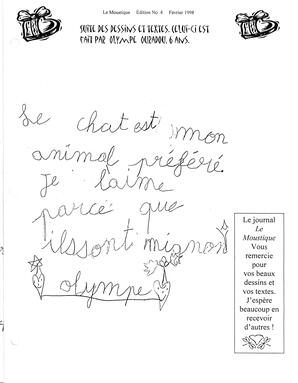 Le Moustique Édition No. 4 Février 1998
SUITE DES DESSINS ET TEXTES. CELUI-CI EST
FAIT PAR OLYMPE OURADOU, 6 ANS.
Le chat est mon
animal préféré
Je l'aime
parce que
ils sont mignon
olympe
Le journal
Le
Moustique
Vous
remercie
pour
vos beaux
dessins et
vos textes.
J'espère
beaucoup en
recevoir
d'autres !